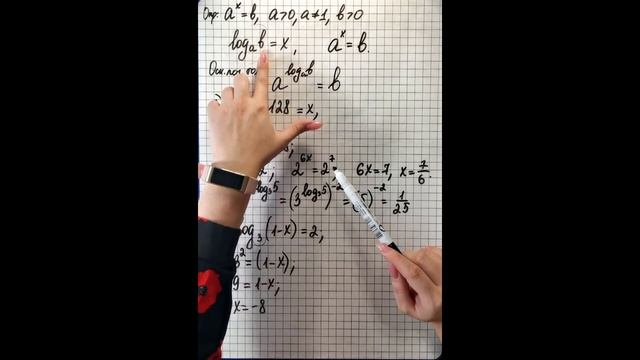 Опр: a^x = b, a>0, a≠1, b>0
log_a b = x, a^x = b.
a^(log_a b) = b
128 = x,
2^(6x) = 2^7; 6x = 7, x = 7/6
log_3 5 = (3^(log_3 5))^(-2) = (5)^(-2) = 1/25
log_3 (1-x) = 2,
3^2 = (1-x);
9 = 1-x;
x = -8